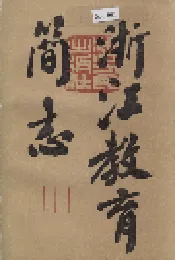 浙江教育
简志